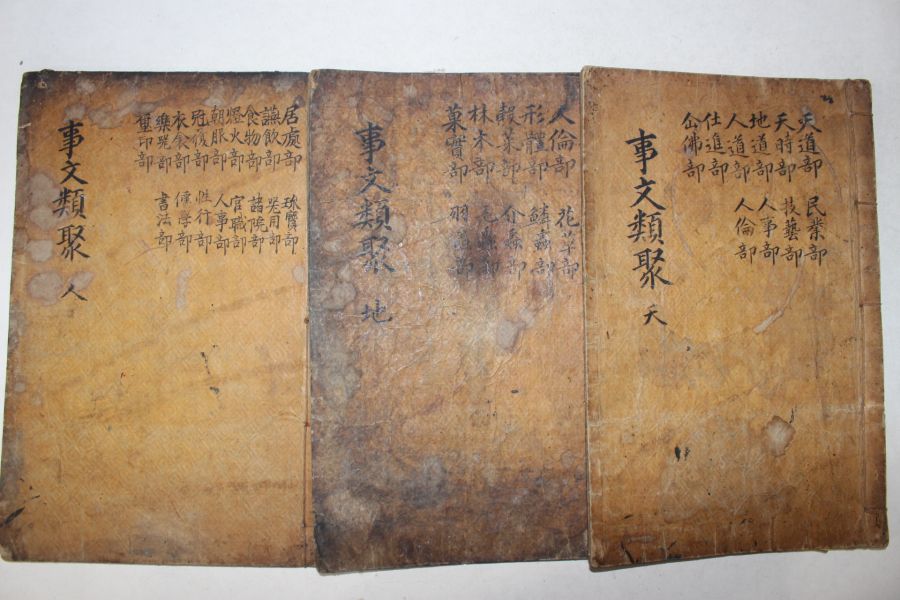 天道部 民業部
天時部 技藝部
地道部 人事部
人道部 人倫部
仕進部
仚佛部
事文類聚 天
人倫部 花草部
形體部 鱗蟲部
穀菜部 介蟲部
林木部 毛蟲部
菓實部 羽蟲部
事文類聚 地
居處部 珠寶部
讌飮部 器用部
食物部 諸院部
燈火部 官職部
朝服部 人事部
冠履部 性行部
衣衾部 儒學部
樂器部 書法部
璽印部
事文類聚 人